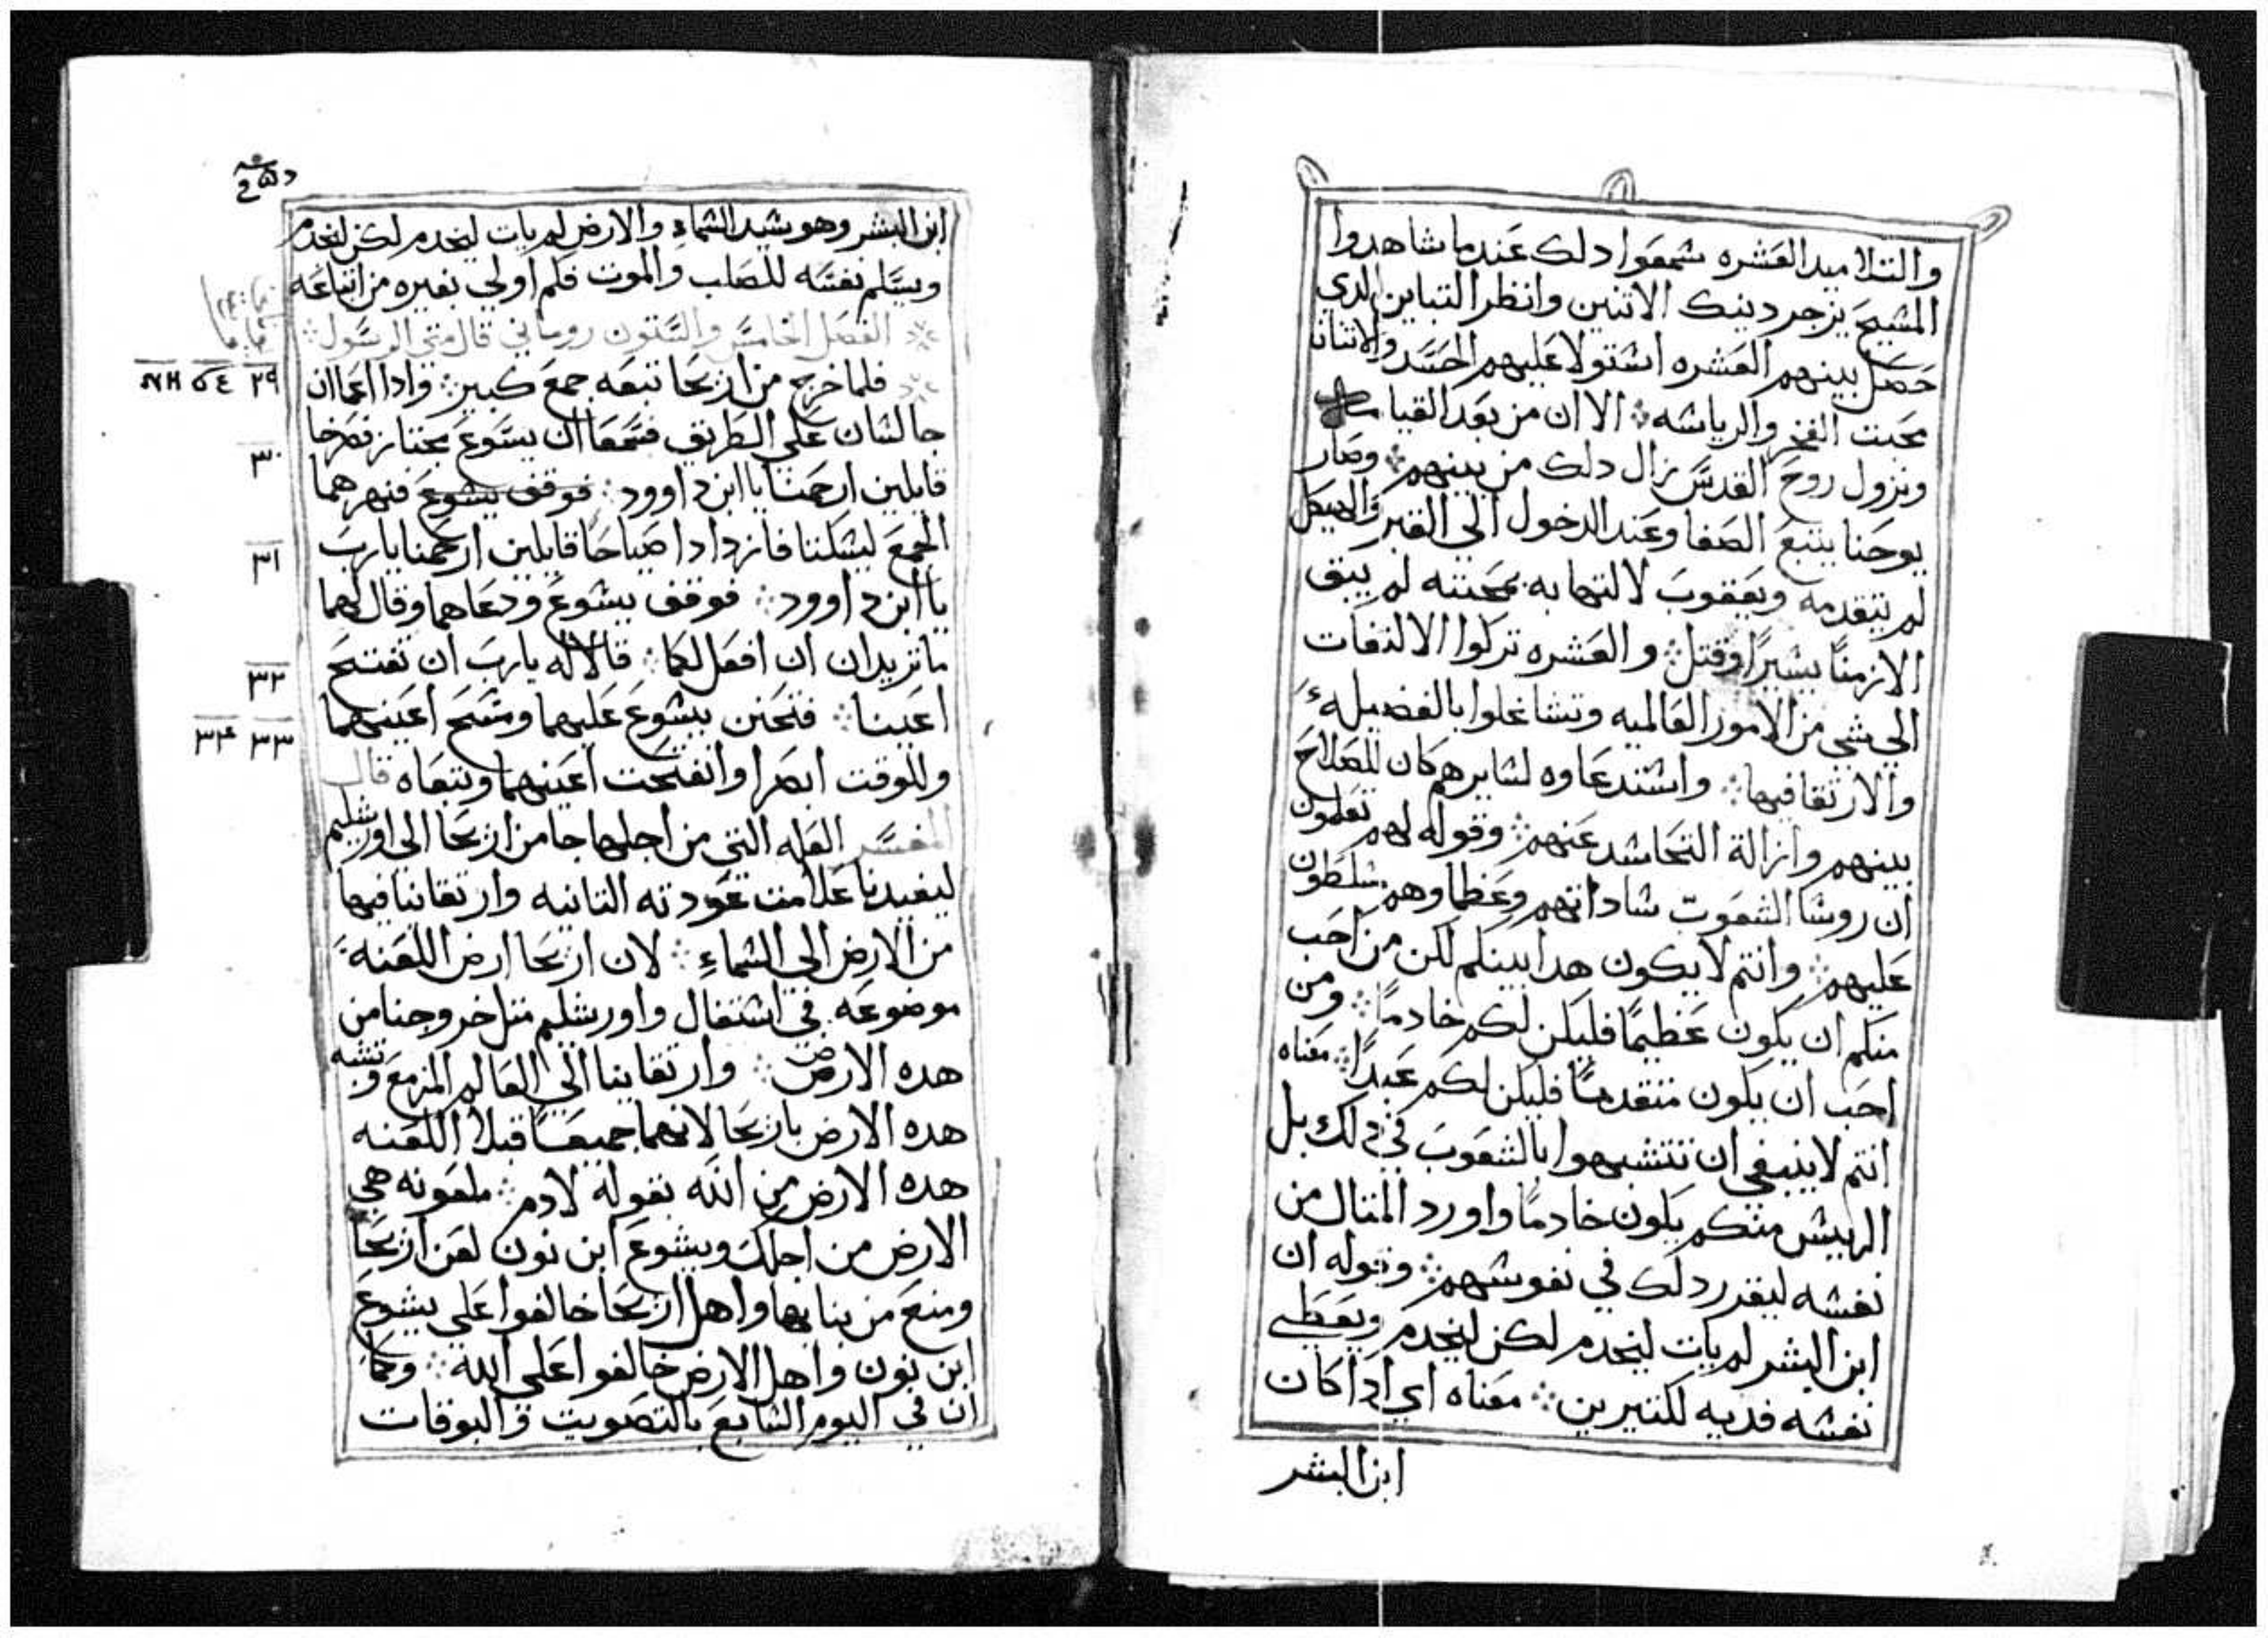 والتلاميد العشره سمعوا دلك عند ما شاهدوا
المسيح يزجر دينك الاتنين وانظر التباين الدي
حصل بينهم العشره استولا عليهم الحسد والاتنان
محبت الفخر والرياسه ⁘ الا ان من بعد القيامه
ونزول روح القدس زال دلك من بينهم ⁘ وصار
يوحنا يتبع الصفا وعند الدخول الي القبر والهيكل
لم يتقدمه ويعقوب لالتهابه بمحبته لم يبق
الا زمنًا يسيرًا وقتل ⁘ والعشره تركوا الالتفات
الي شي من الامور العالميه وتشاغلوا بالفضيله
والارتقا فيها ⁘ واستدعاوه لسايرهم كان للصلاح
بينهم وازالة التحاسد عنهم ⁘ وقوله لهم تعلمون
ان روسا الشعوب ساداتهم وعظماوهم مسلطون
عليهم ⁘ وانتم لا يكون هدا بينكم لكن من احب
منكم ان يكون عظيمًا فليكن لكم خادمًا ⁘ ومن
احب ان يكون متقدمًا فليكن لكم عبدًا ⁘ معناه
انتم لا ينبغي ان تتشبهوا بالشعوب في دلك بل
الرييس منكم يكون خادمًا واورد المتال من
نفسه ليقرر دلك في نفوسهم ⁘ وقوله ان
ابن البشر لم يات ليخدم لكن ليخدم ويعطي
نفسه فديه لكتيرين ⁘ معناه اي ادا كان
ابن البشر
ابن البشر وهو سيد السماء والارض لم يات ليخدم لكن ليخدم
ويسلم نفسه للصلب والموت فلم اولي بغيره من اتباعه
الفصل الخامس والستون روماني قال متى الرسول
٢٩
فلما خرج من اريحا تبعه جمع كبير ⁘ وادا اعماان
جالسان علي الطريق فسمعا ان يسوع مجتاز فصرخا
٣٠
قايلين ارحمنا يا ابن داوود ⁘ فوقف يسوع فنهرهما
الجمع ليسكتا فازدادا صياحًا قايلين ارحمنا يارب
٣١
يا ابن داوود ⁘ فوقف يسوع ودعاهما وقال لهما
ما تريدان ان افعل لكما ⁘ قالا له يارب ان تفتح
٣٢
اعيننا ⁘ فتحنن يسوع عليهما ومسح اعينهما
٣٣ ٣٤
وللوقت ابصرا وانفتحت اعينهما وتبعاه قال
المفسر العله التي من اجلها جا من اريحا الى اورشليم
ليفيدنا علامت عودته التانيه وارتقاينا فيها
من الارض الي السماء ⁘ لان اريحا ارض اللعنه
موضوعه في استفال واورشليم متل خروجنا من
هده الارض ⁘ وارتقاينا الي العالم المزمع وتشبه
هده الارض باريحا لانهما جميعًا قبلا اللعنه
هده الارض من الله بقوله لادم ⁘ ملعونه هي
الارض من اجلك ويشوع ابن نون لعن اريحا
ومنع من بنايها واهل اريحا خالفوا علي يشوع
ابن نون واهل الارض خالفوا علي الله ⁘ وكما
ان في اليوم السابع بالتصويت والبوقات